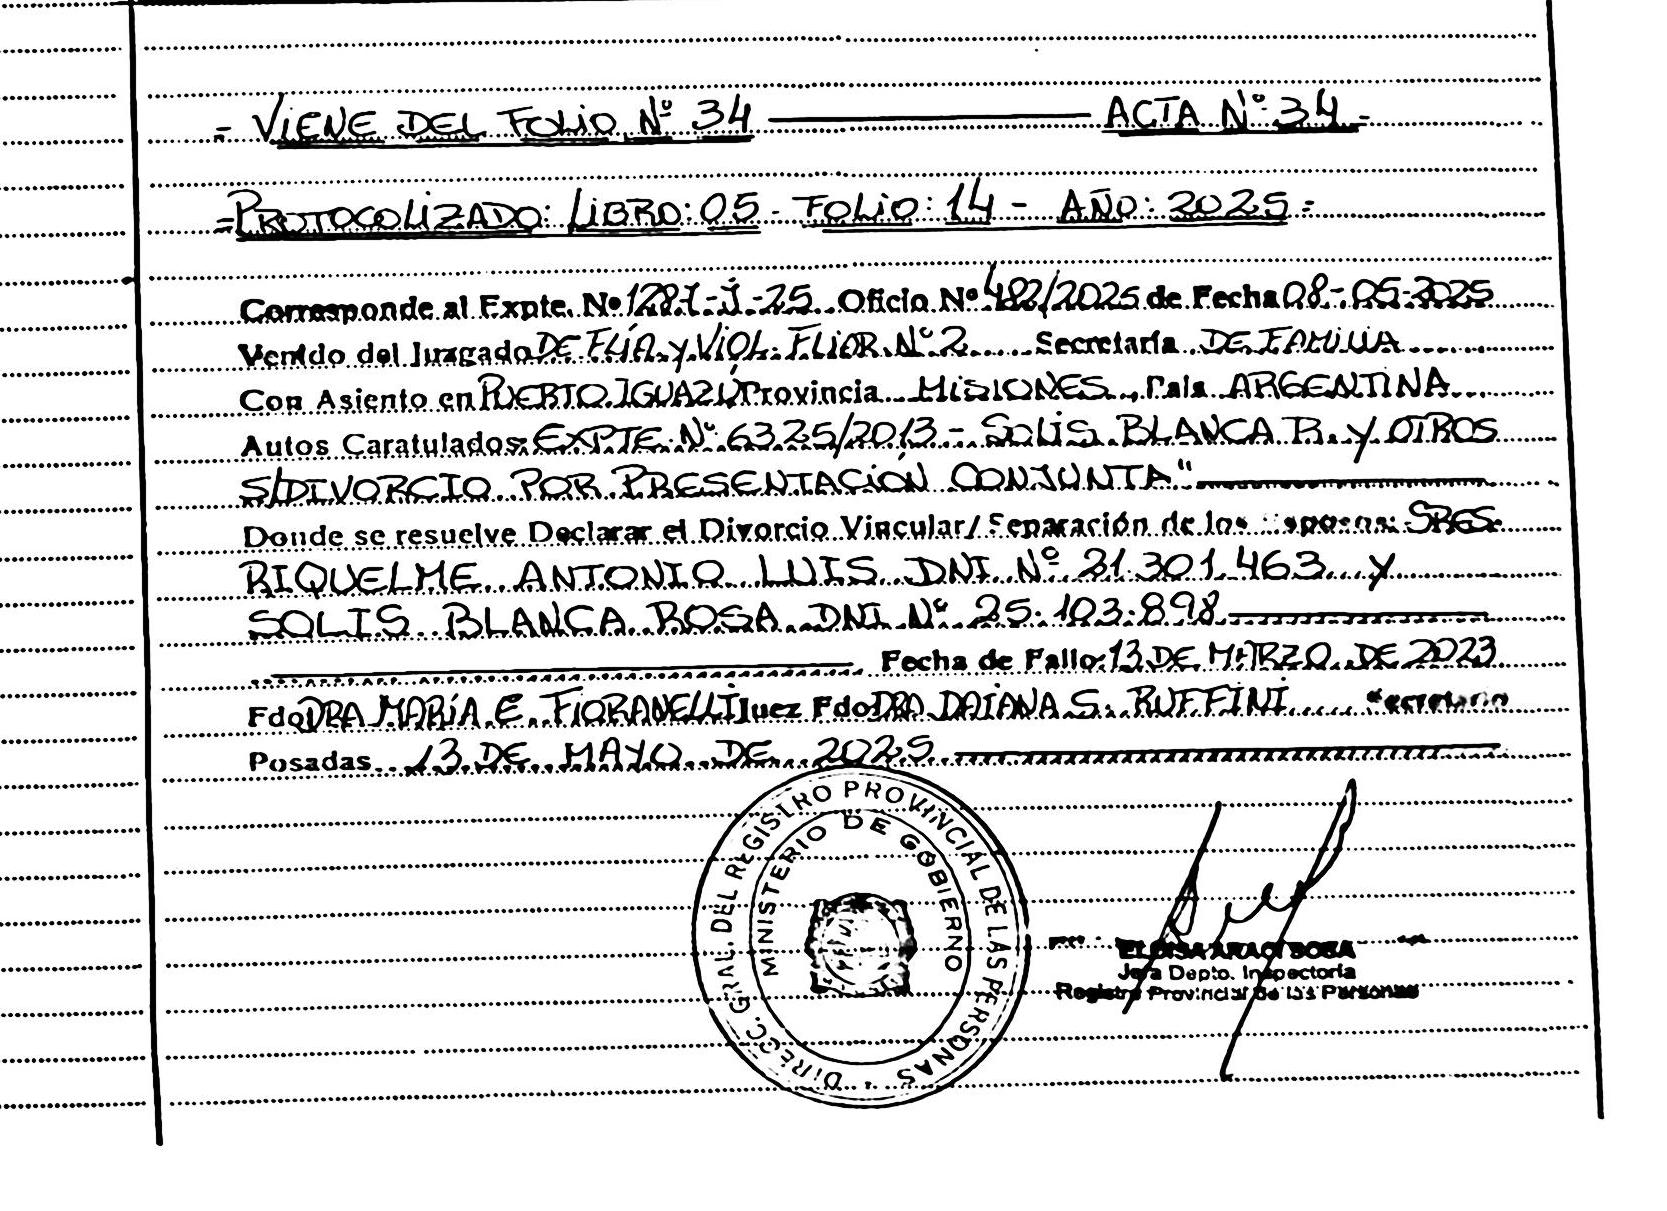 = VIENE DEL FOLIO Nº 34 ——— ACTA Nº 34 -
= PROTOCOLIZADO: LIBRO: 05 - FOLIO: 14 - AÑO: 2025 =
Corresponde al Expte. Nº 1287-J-25 Oficio Nº 482/2025 de Fecha 08-05-2025
Venido del Juzgado DE FLÍA. y VIOL. FLIAR. Nº 2 Secretaría DE FAMILIA
Con Asiento en PUERTO IGUAZÚ Provincia MISIONES, País ARGENTINA
Autos Caratulados: EXPTE. Nº 6325/2013 - SOLIS BLANCA R. y OTROS
S/DIVORCIO POR PRESENTACIÓN CONJUNTA"
Donde se resuelve Declarar el Divorcio Vincular/ Separación de los esposos: SRES.
RIQUELME ANTONIO LUIS DNI Nº 21.301.463 y
SOLIS BLANCA ROSA DNI Nº 25.103.898
Fecha de Fallo: 13 DE MARZO DE 2023
Fdo DRA MARÍA E. FIORANELLI Juez Fdo DRA DAIANA S. RUFFINI Secretario
Posadas 13 DE MAYO DE 2025
DIRECC. GRAL. DEL REGISTRO PROVINCIAL DE LAS PERSONAS
MINISTERIO DE GOBIERNO
ELOISA ARACI SOSA
Jefa Depto. Inspectoría
Registro Provincial de las Personas